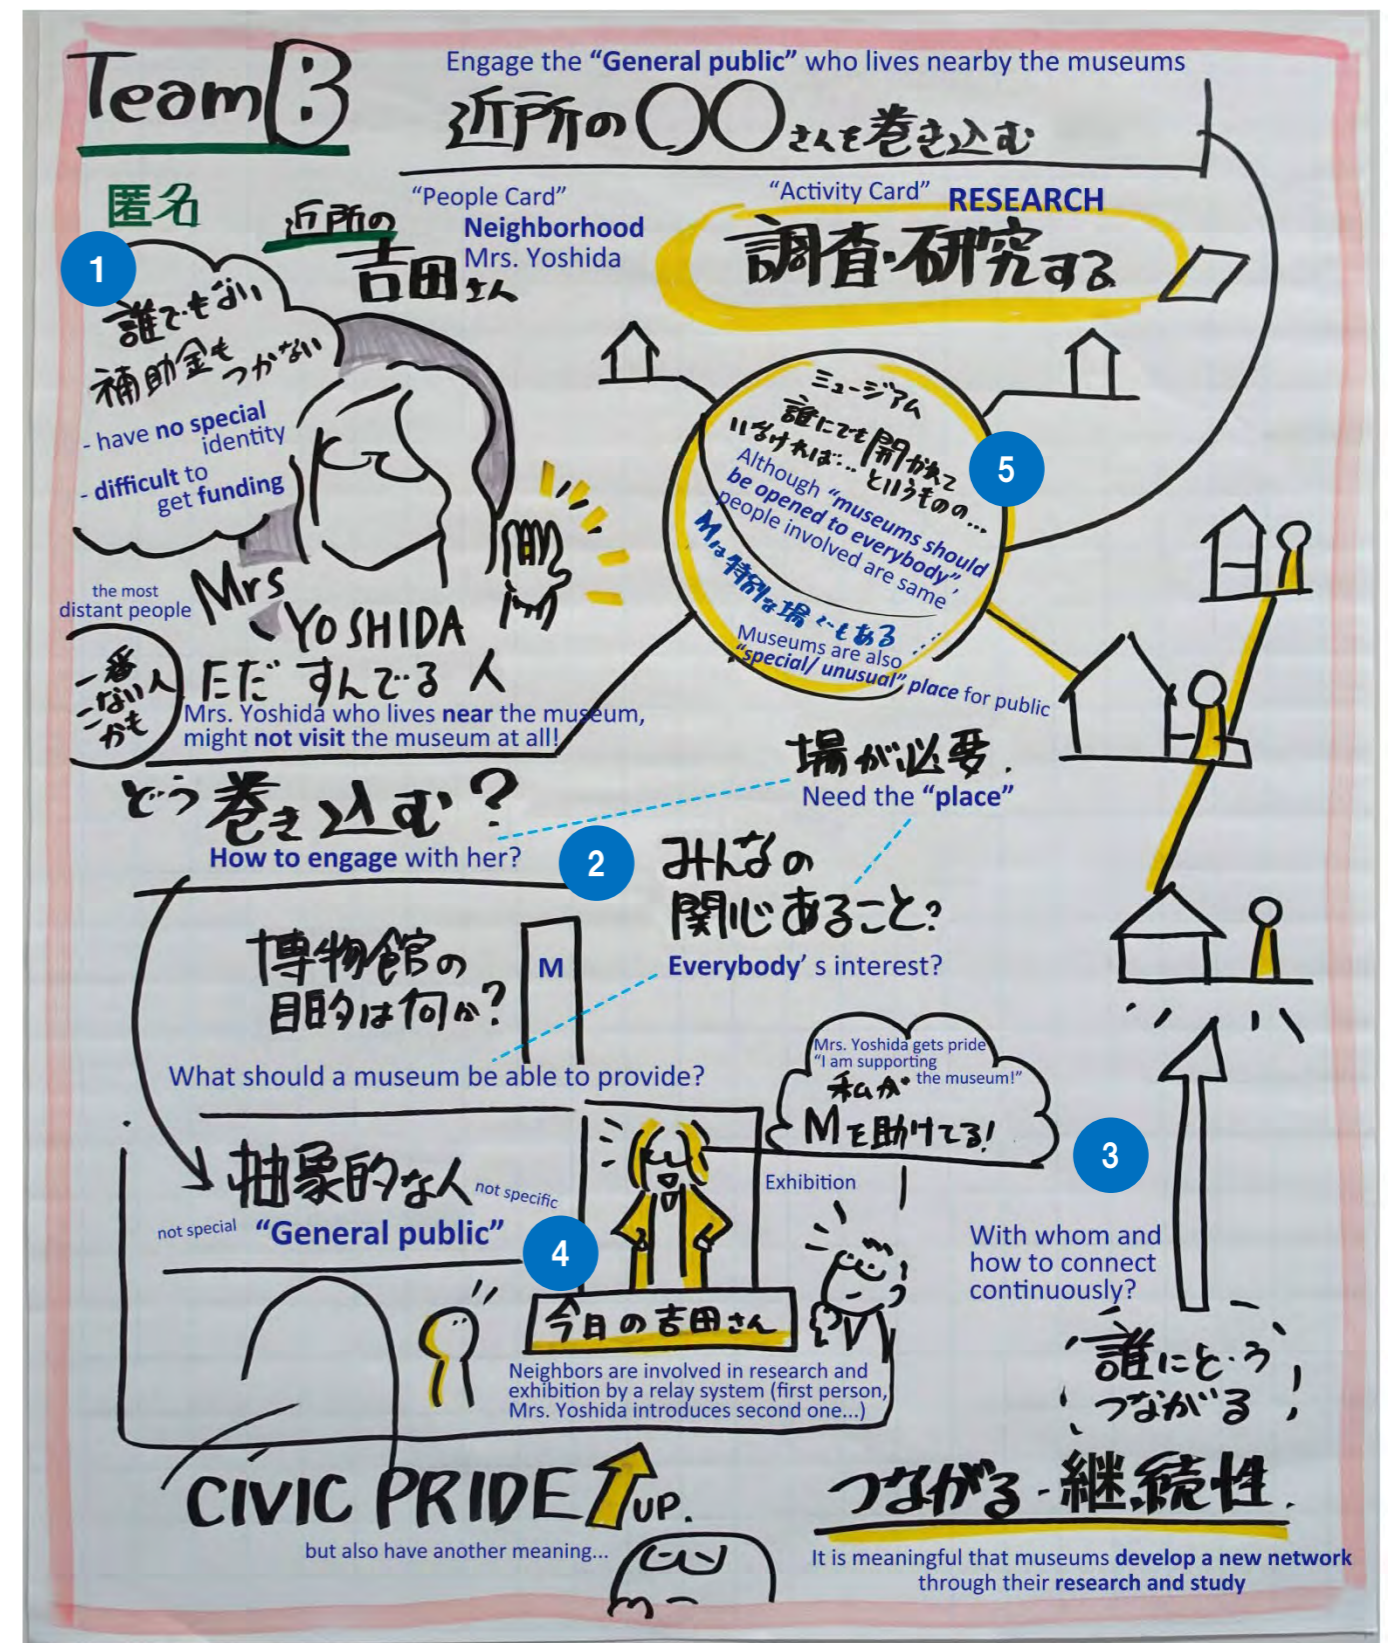 Team B
Engage the “General public” who lives nearby the museums
近所の〇〇さんを巻き込む
匿名
近所の
吉田さん
“People Card”
Neighborhood
Mrs. Yoshida
“Activity Card” RESEARCH
調査・研究する
1
誰でもない
補助金も
つかない
- have no special
identity
- difficult to
get funding
Mrs
YOSHIDA
the most
distant people
一番
こない人
かも
ただ すんでる 人
Mrs. Yoshida who lives near the museum,
might not visit the museum at all!
ミュージアム
誰にでも開かれて
いなければ…というものの…
5
Although “museums should
be opened to everybody”,
people involved are same
Mは特別な場でもある
Museums are also
“special/ unusual” place for public
どう巻き込む?
How to engage with her?
2
場が必要.
Need the “place”
みんなの
関心あること?
Everybody’ s interest?
博物館の
目的は何か?
M
What should a museum be able to provide?
抽象的な人
not specific
not special “General public”
4
Mrs. Yoshida gets pride
“I am supporting
the museum!”
私が
Mを助けてる!
Exhibition
今日の吉田さん
Neighbors are involved in research and
exhibition by a relay system (first person,
Mrs. Yoshida introduces second one...)
3
With whom and
how to connect
continuously?
誰にどう
つながる
CIVIC PRIDE UP.
but also have another meaning...
つながる・継続性.
It is meaningful that museums develop a new network
through their research and study